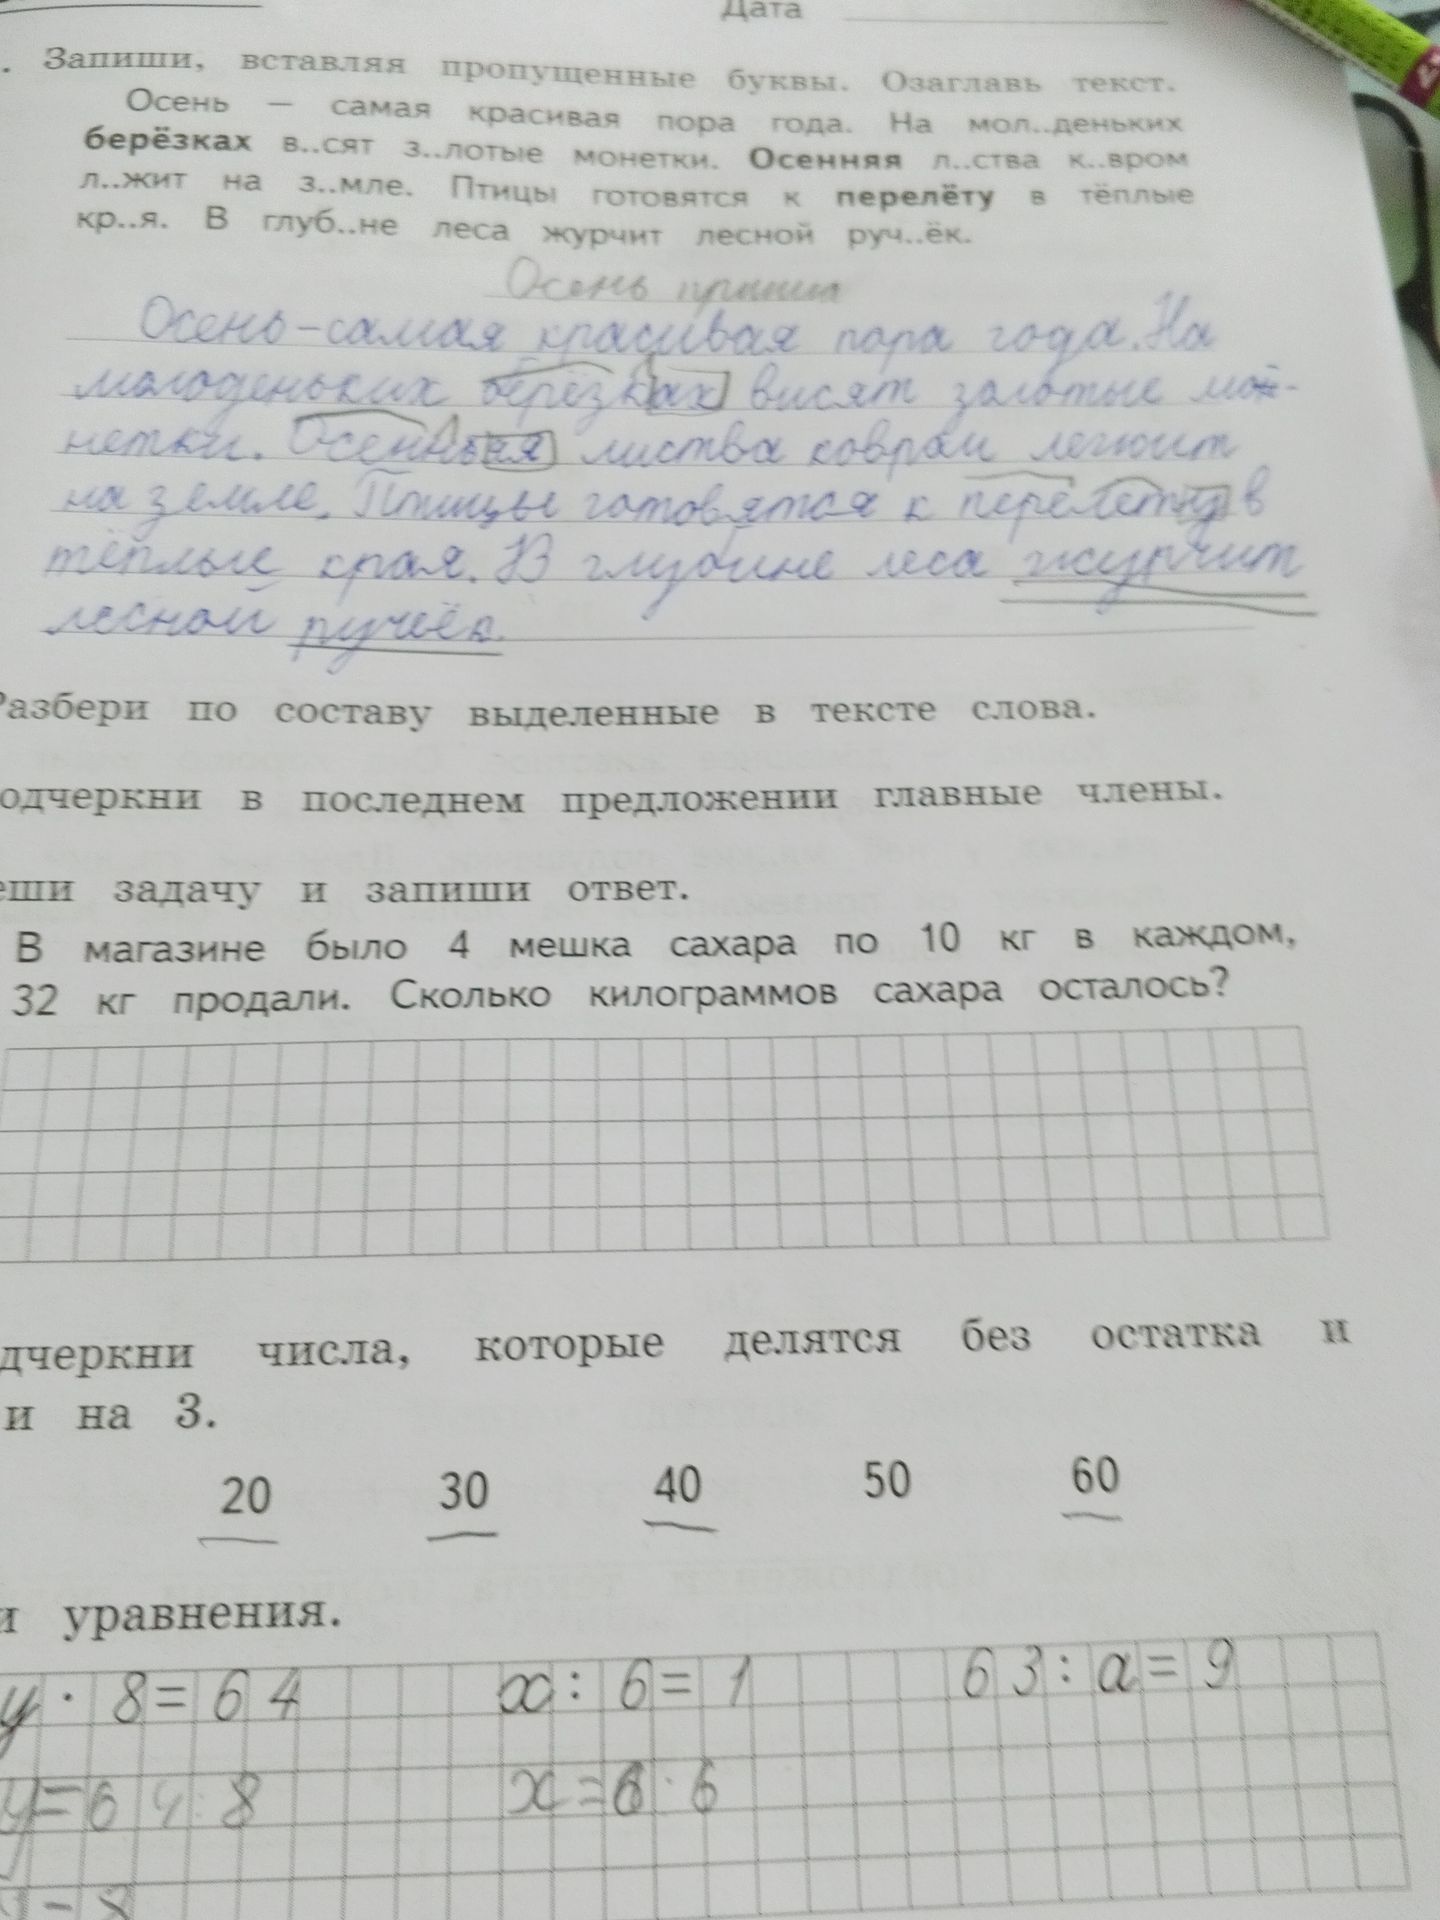 Дата
. Запиши, вставляя пропущенные буквы. Озаглавь текст.
Осень — самая красивая пора года. На мол..деньких
берёзках в..сят з..лотые монетки. Осенняя л..ства к..вром
л..жит на з..мле. Птицы готовятся к перелёту в тёплые
кр..я. В глуб..не леса журчит лесной руч..ёк.
Осень пришла
Осень – самая красивая пора года. На
молоденьких берёзках висят золотые мо-
нетки. листва ковром лежит
на земле. Птицы готовятся к перелету в
тёплые края. В глубине леса журчит
лесной ручьёк.
Разбери по составу выделенные в тексте слова.
одчеркни в последнем предложении главные члены.
еши задачу и запиши ответ.
В магазине было 4 мешка сахара по 10 кг в каждом,
32 кг продали. Сколько килограммов сахара осталось?
дчеркни числа, которые делятся без остатка и
и на 3.
20 30 40 50 60
и уравнения.
у · 8 = 64 х : 6 = 1 63 : а = 9
у = 64 : 8 х = 6 · 6